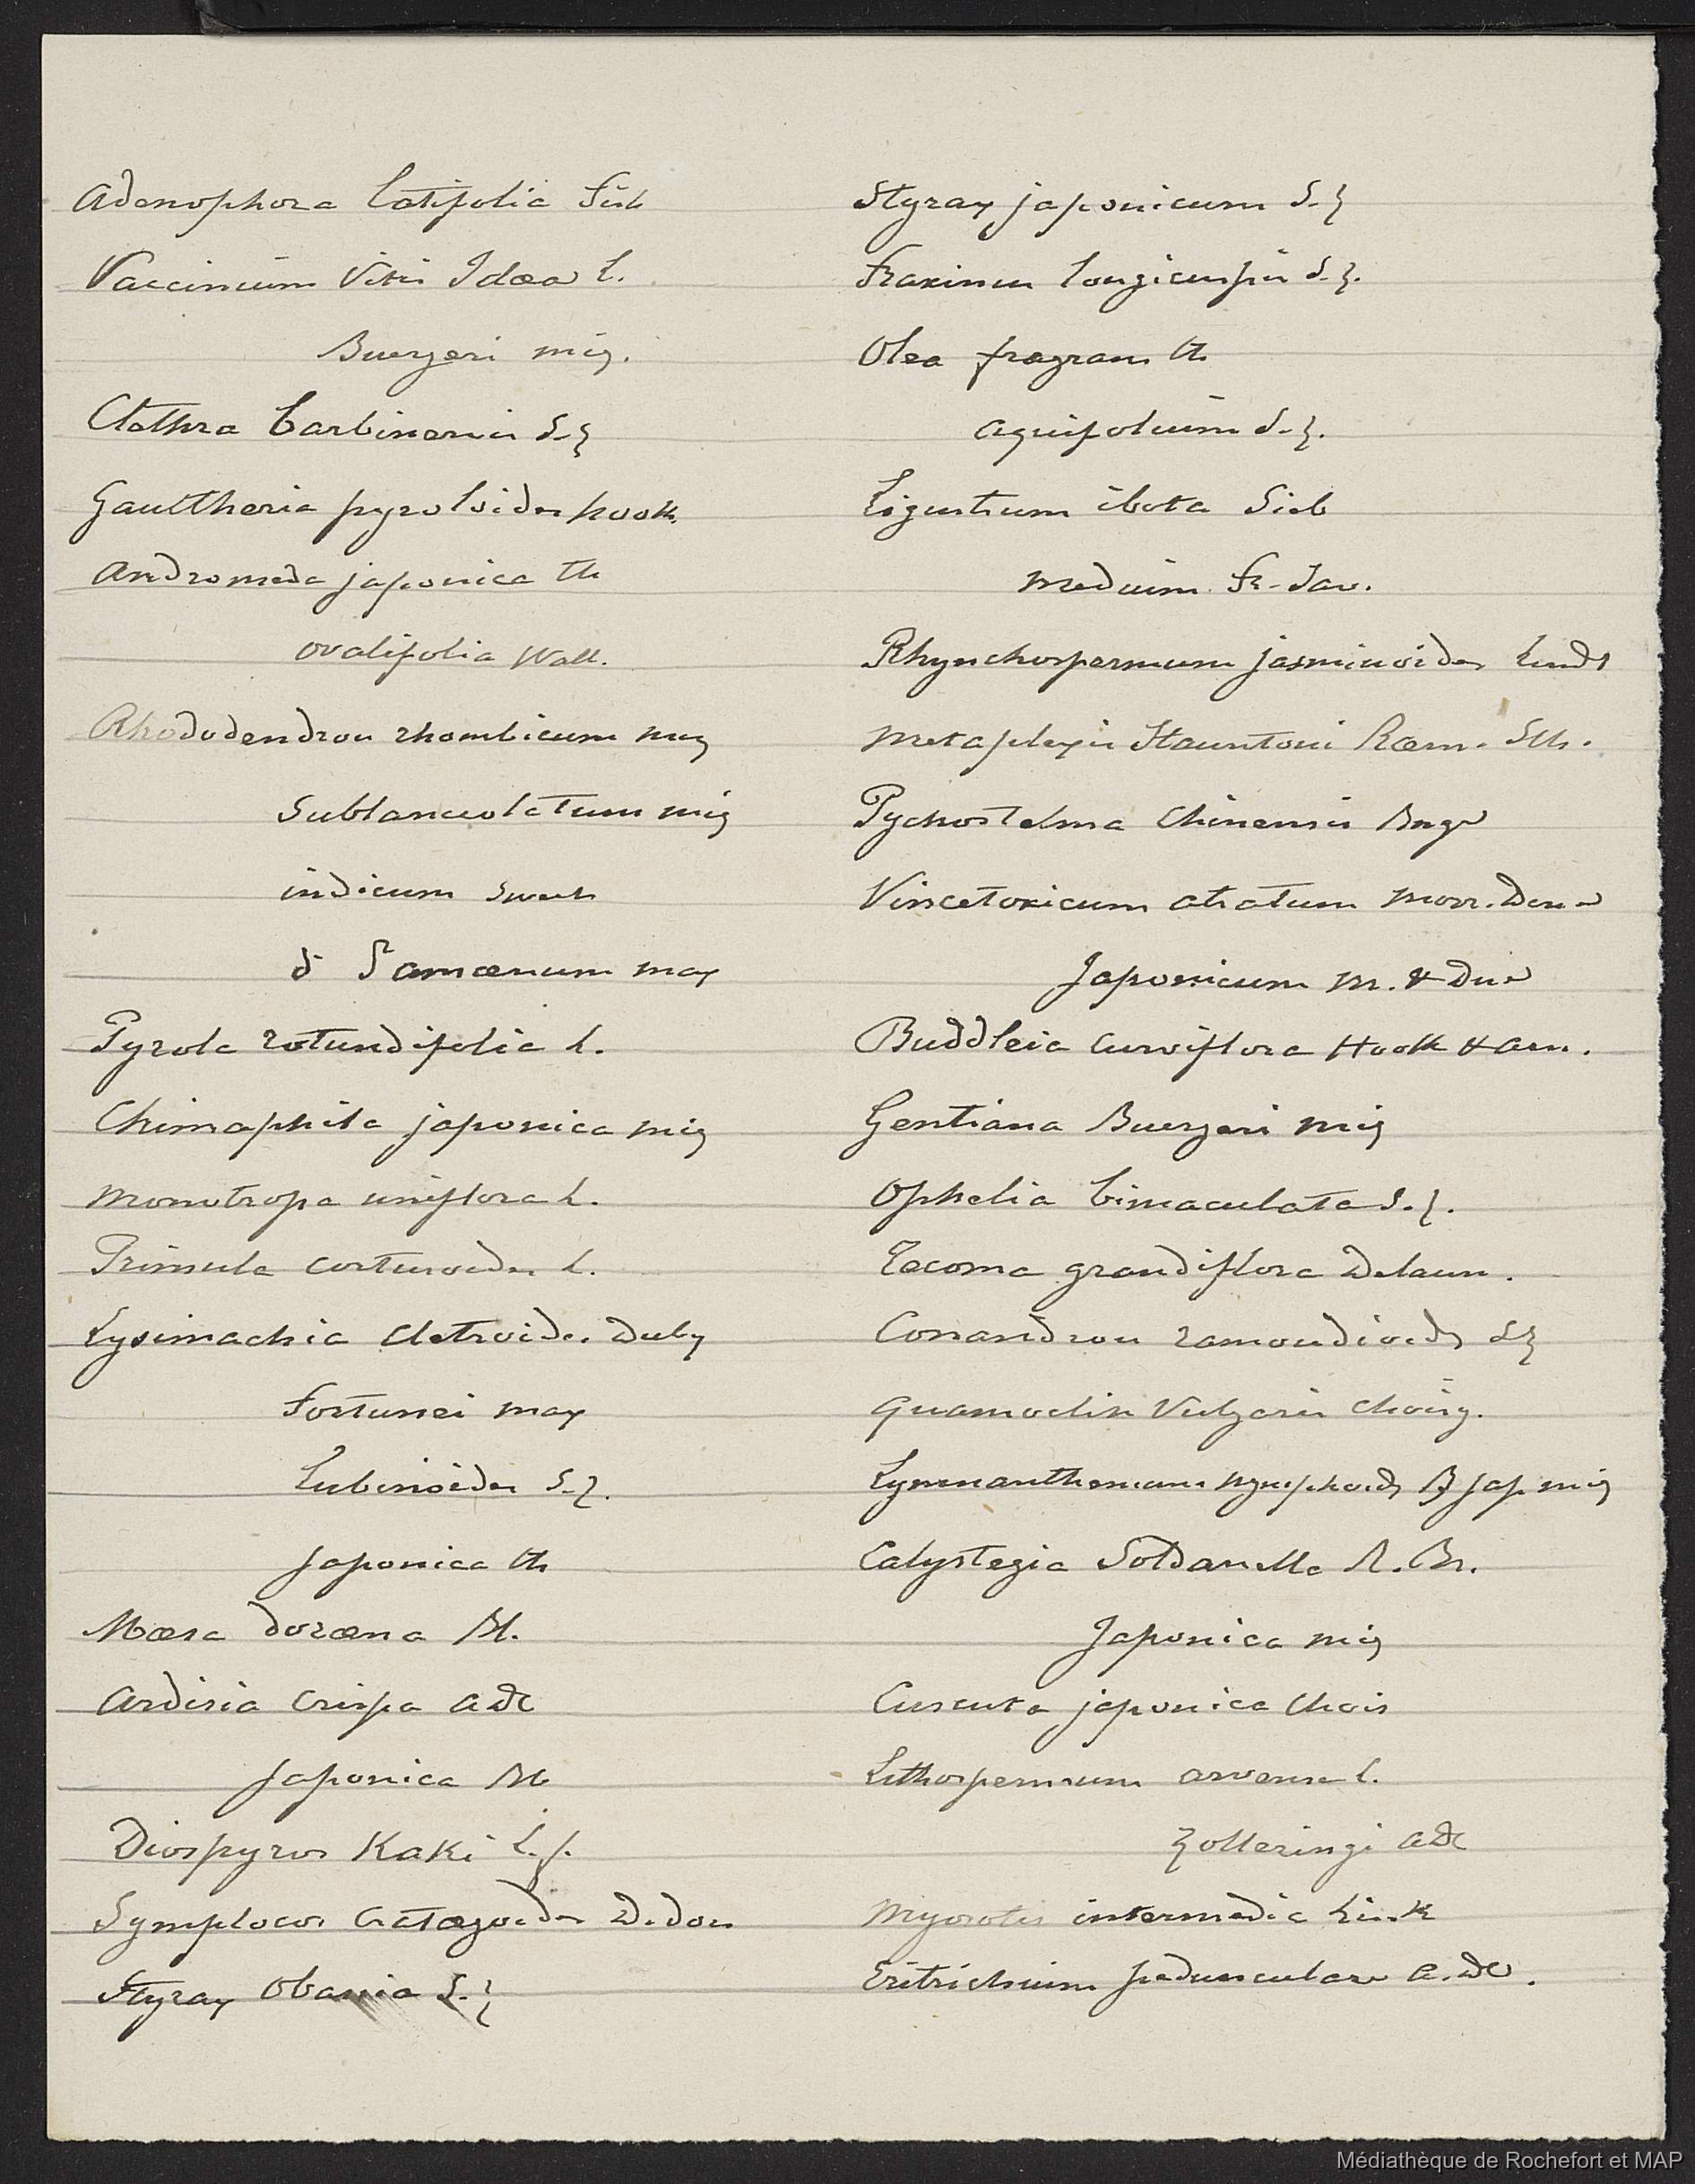 Adenophora latifolia Fisch
Vaccinium Vitis Idæa L.
Buergeri miq.
Clethra barbinervis S.Z
Gaultheria pyroloides hook.
Andromeda japonica Th
ovalifolia Wall.
Rhododendron rhombicum miq
Sublanceolatum miq
indicum Sweet
δ amœnum max
Pyrola rotundifolia L.
Chimaphila japonica miq
Monotropa uniflora L.
Primula cortusoides L.
Lysimachia cletroides Duby
Fortunei max
Lubinioides S.Z.
Japonica Th
Mæsa doræna Bl.
Ardisia Crispa ADC
Japonica Bl
Diospyros Kaki L.f.
Symplocos Cratægoides D.don
Styrax Obassia S.Z
Styrax japonicum S.Z
Fraxinus longicuspis S.Z.
Olea fragrans Th
aquifolium S.Z.
Ligustrum ibota Sieb
medium Fr. Sav.
Rhynchospermum jasminoides Lindl
Metaplexis Stauntoni Rœm. Sch.
Pycnostelma Chinensis Bnge
Vincetoxicum atratum Morr. Dcne
Japonicum M. & Dne
Buddleia Curviflora Hook & Arn.
Gentiana Buergeri miq
Ophelia bimaculata S.Z.
Tecoma grandiflora Delaun.
Conandron ramondioides S.Z
Quamoclin Vulgaris Choisy.
Lymnanthemum nymphoides β jap miq
Calystegia Soldanella R. Br.
Japonica miq
Cuscuta japonica Chois
Lithospermum arvense L.
Zolleringi ADC
Myosotis intermedia Link
Eritrichium pedunculare A. DC.